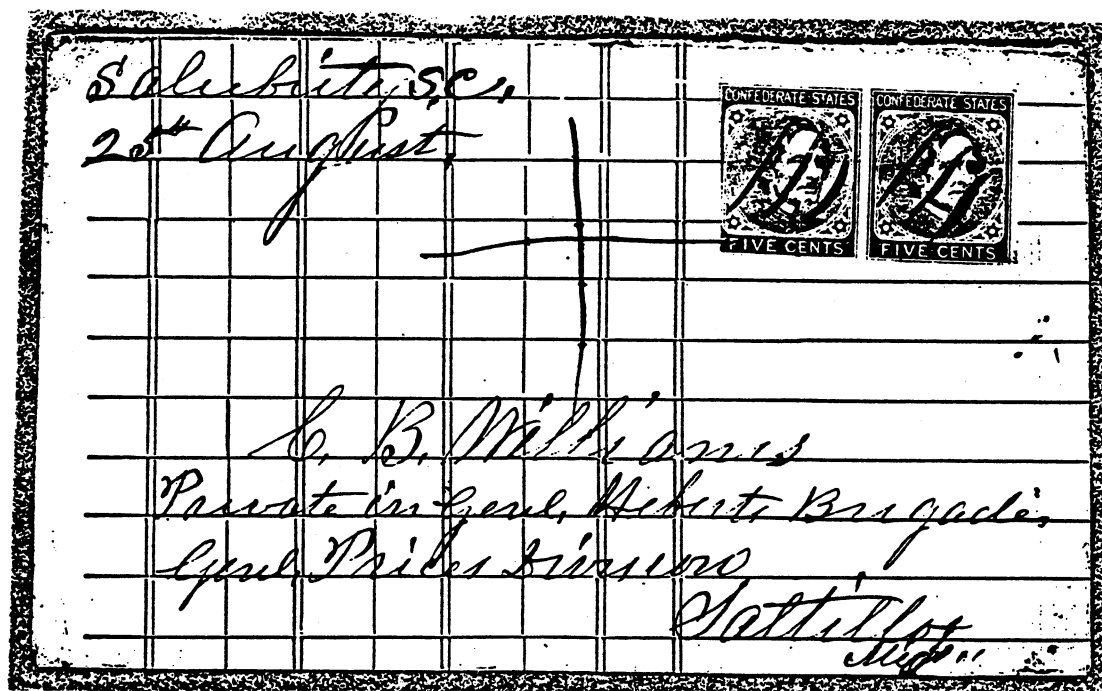 Salubrity S.C.,
25th August,
CONFEDERATE STATES CONFEDERATE STATES
FIVE CENTS FIVE CENTS
C. B. Williams
Private in Genl. Heberts Brigade,
Genl. Prices Division
Saltillo,
Miss